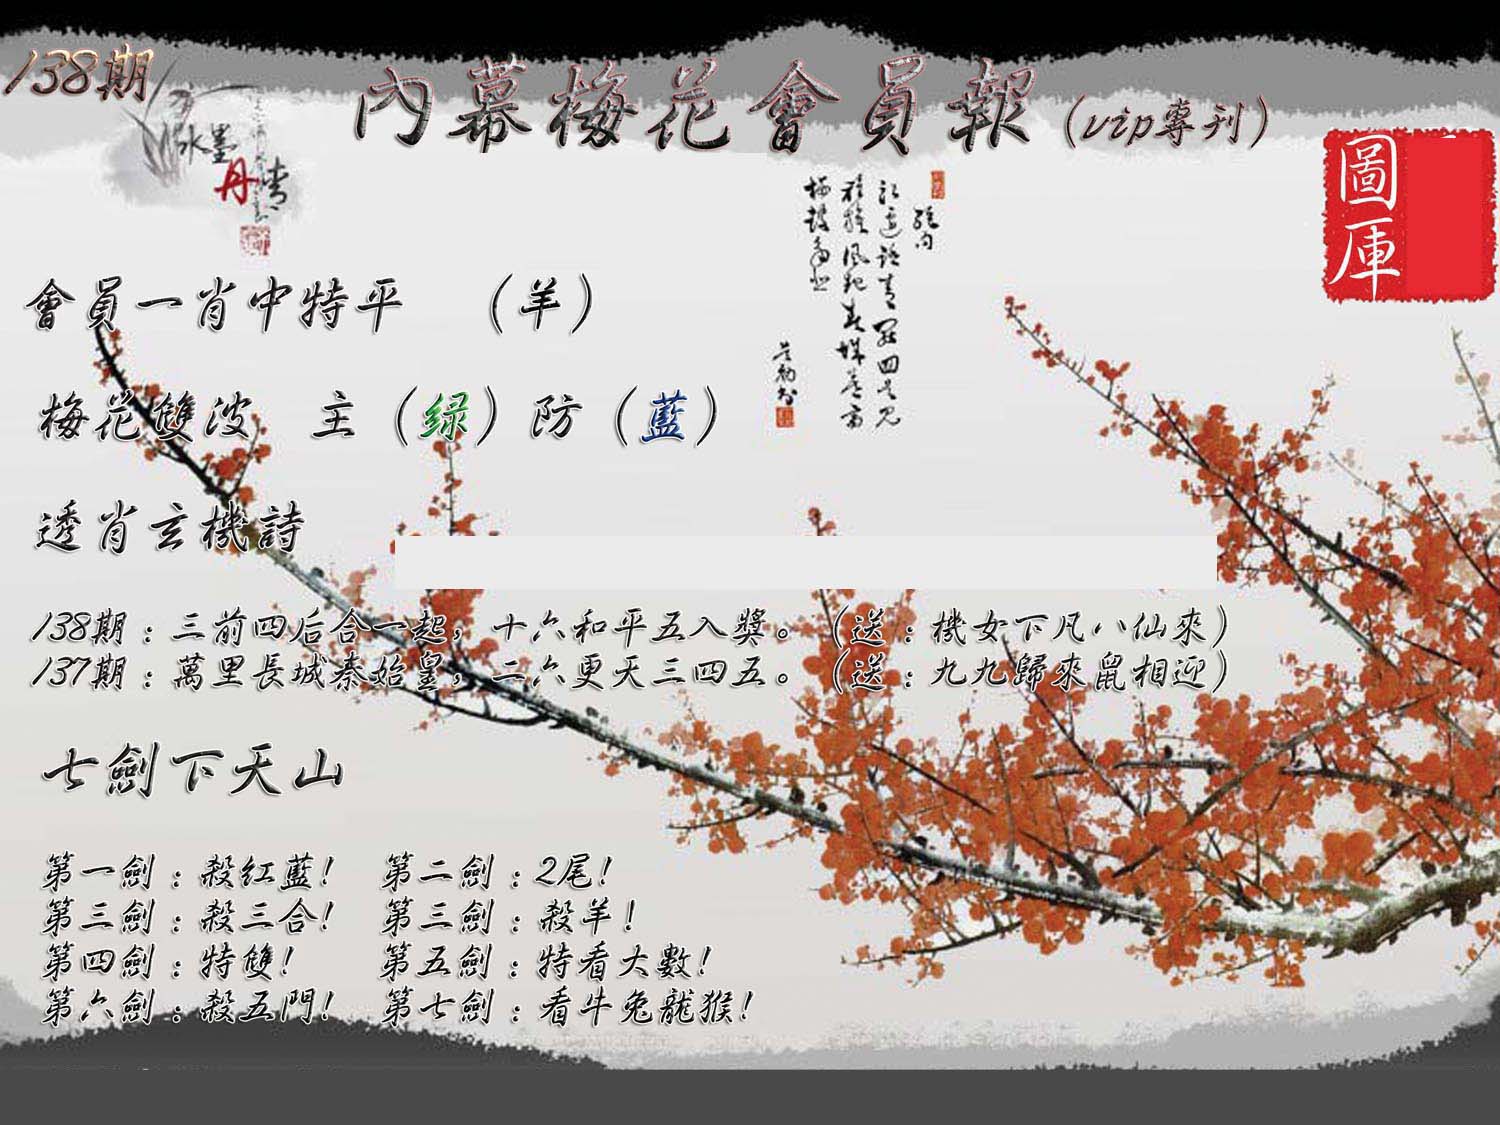 138期
內幕梅花會員報(vip專刊)
水墨
丹青
圖庫
會員一肖中特平 (羊)
梅花雙波 主(绿)防(藍)
透肖玄機詩
138期:三前四后合一起,十六和平五入獎。(送:機女下凡八仙來)
137期:萬里長城秦始皇,二六更天三四五。(送:九九歸來鼠相迎)
七劍下天山
第一劍:殺紅藍! 第二劍:2尾!
第三劍:殺三合! 第三劍:殺羊!
第四劍:特雙! 第五劍:特看大數!
第六劍:殺五門! 第七劍:看牛兔龍猴!